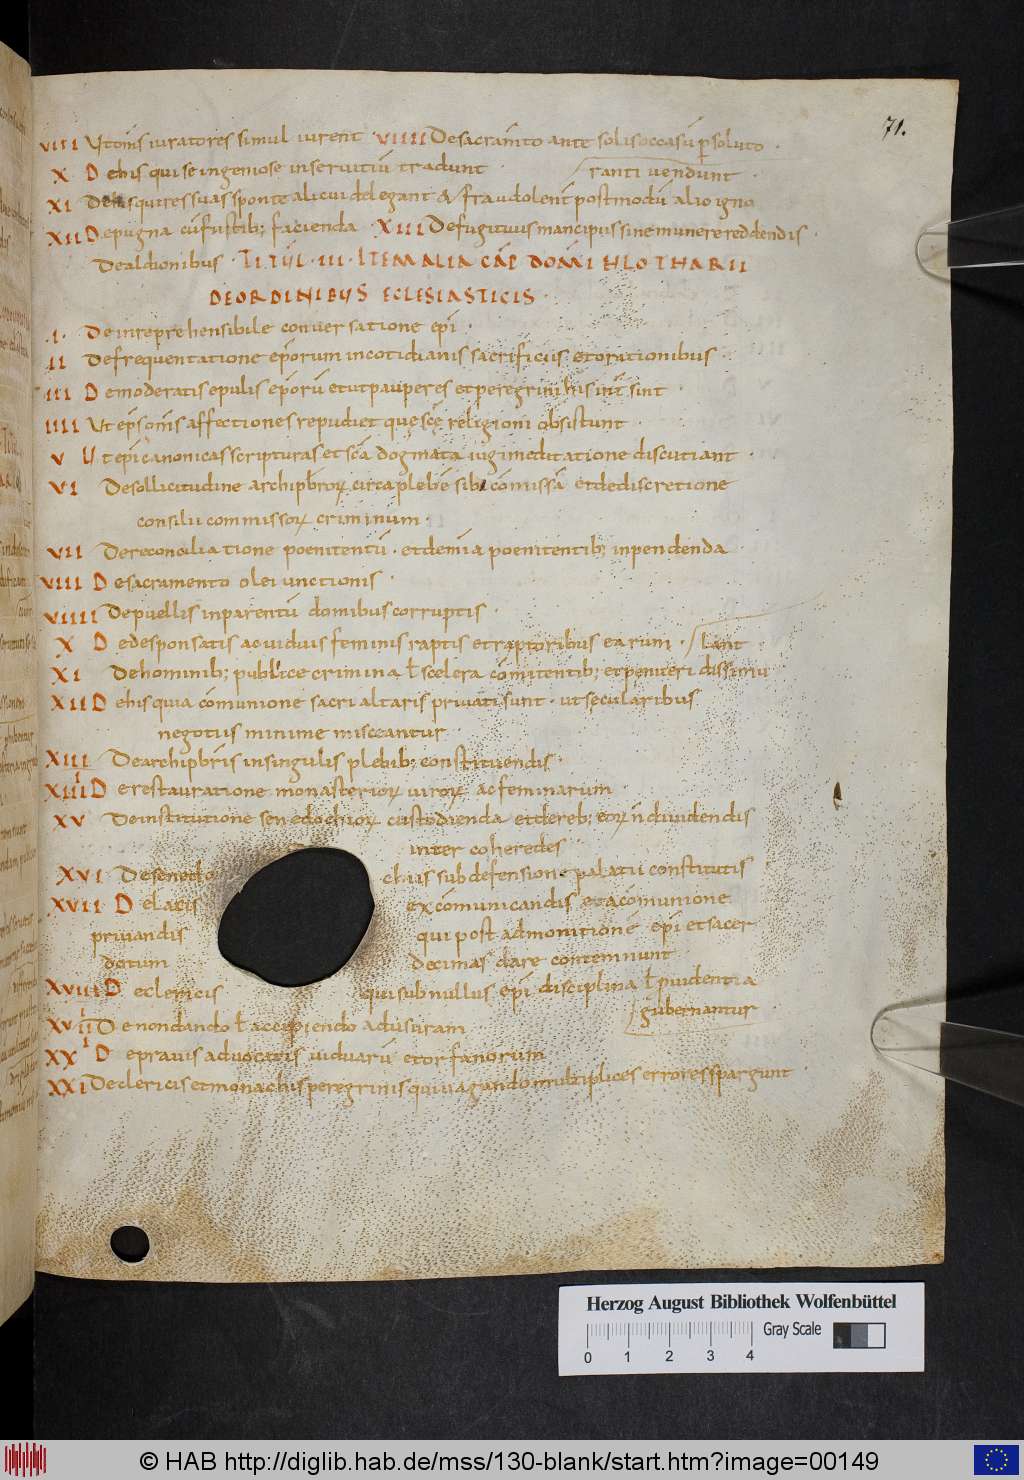 71.
VIII Ut om̄s iuratores simul iurent · VIIII De sacram̄to ante solis occasū p̄soluto ·
X De his qui se ingeniose in servitiū tradunt · ranti vendunt ·
XI De his qui res suas sponte alicui delegant & fraudolent̄ postmodū alio igno
XII De pugna cū fustib; facienda · XIII De fugitivis mancipiis sine munere reddendis ·
De aldionibus · TITUL · III · ITEM ALIA CAP̄ DOM̄I HLOTHARII
DE ORDINIBUS ECLESIASTICIS ·
·I· De inreprehensibile conversatione ep̄i ·
II De frequentatione ep̄orum in cotidianis sacrificiis et orationibus ·
III De moderatis epulis ep̄orū et ut pauperes et peregrini his int̄sint ·
IIII Ut ep̄s om̄s affectiones repudiet que scę religioni obsistunt ·
V Ut ep̄i canonicas scripturas et scā dogmata iugi meditatione discutiant ·
VI De sollicitudine archipb̄roꝝ circa plebē sibi cōmissā et de discretione
consilii commissoꝝ criminum ·
VII De reconciliatione poenitentū · et de mia poenitentib; inpendenda
VIII De sacramento olei unctionis ·
VIIII De puellis in parentū domibus corruptis ·
X De desponsatis ac viduis feminis raptis et raptoribus earum · lant
XI De hominib; publice crimina ł scelera cōmitentib; et penueri dissimu
XII De his quia cōmunione sacri altaris privati sunt · ut secularibus
negotiis minime misceantur
XIII De archipb̄ris in singulis plebib; constituendis ·
XIIII De restauratione monasterioꝝ viroꝝ ac feminarum ·
XV De institutione senedochioꝝ custodienda et de reb; eoꝝ n̄ dividendis
inter coheredes
XVI De senedo chiis sub defensione palatii constitutis
XVII De laicis excōmunicandis et a cōmunione
privandis qui post admonitionē ep̄i et sacer
dotum decimas dare contemnunt
XVIII De clericis qui sub nullius ep̄i disciplina ł pvidentia
gubernantur
XVIIII De non dando ł accipiendo ad usuram
XX De pravis advocatis viduarū et orfanorum
XXI De clericis et monachis peregrinis qui vagando multiplices errores spargunt ·
Herzog August Bibliothek Wolfenbüttel
Gray Scale
0 1 2 3 4
© HAB http://diglib.hab.de/mss/130-blank/start.htm?image=00149